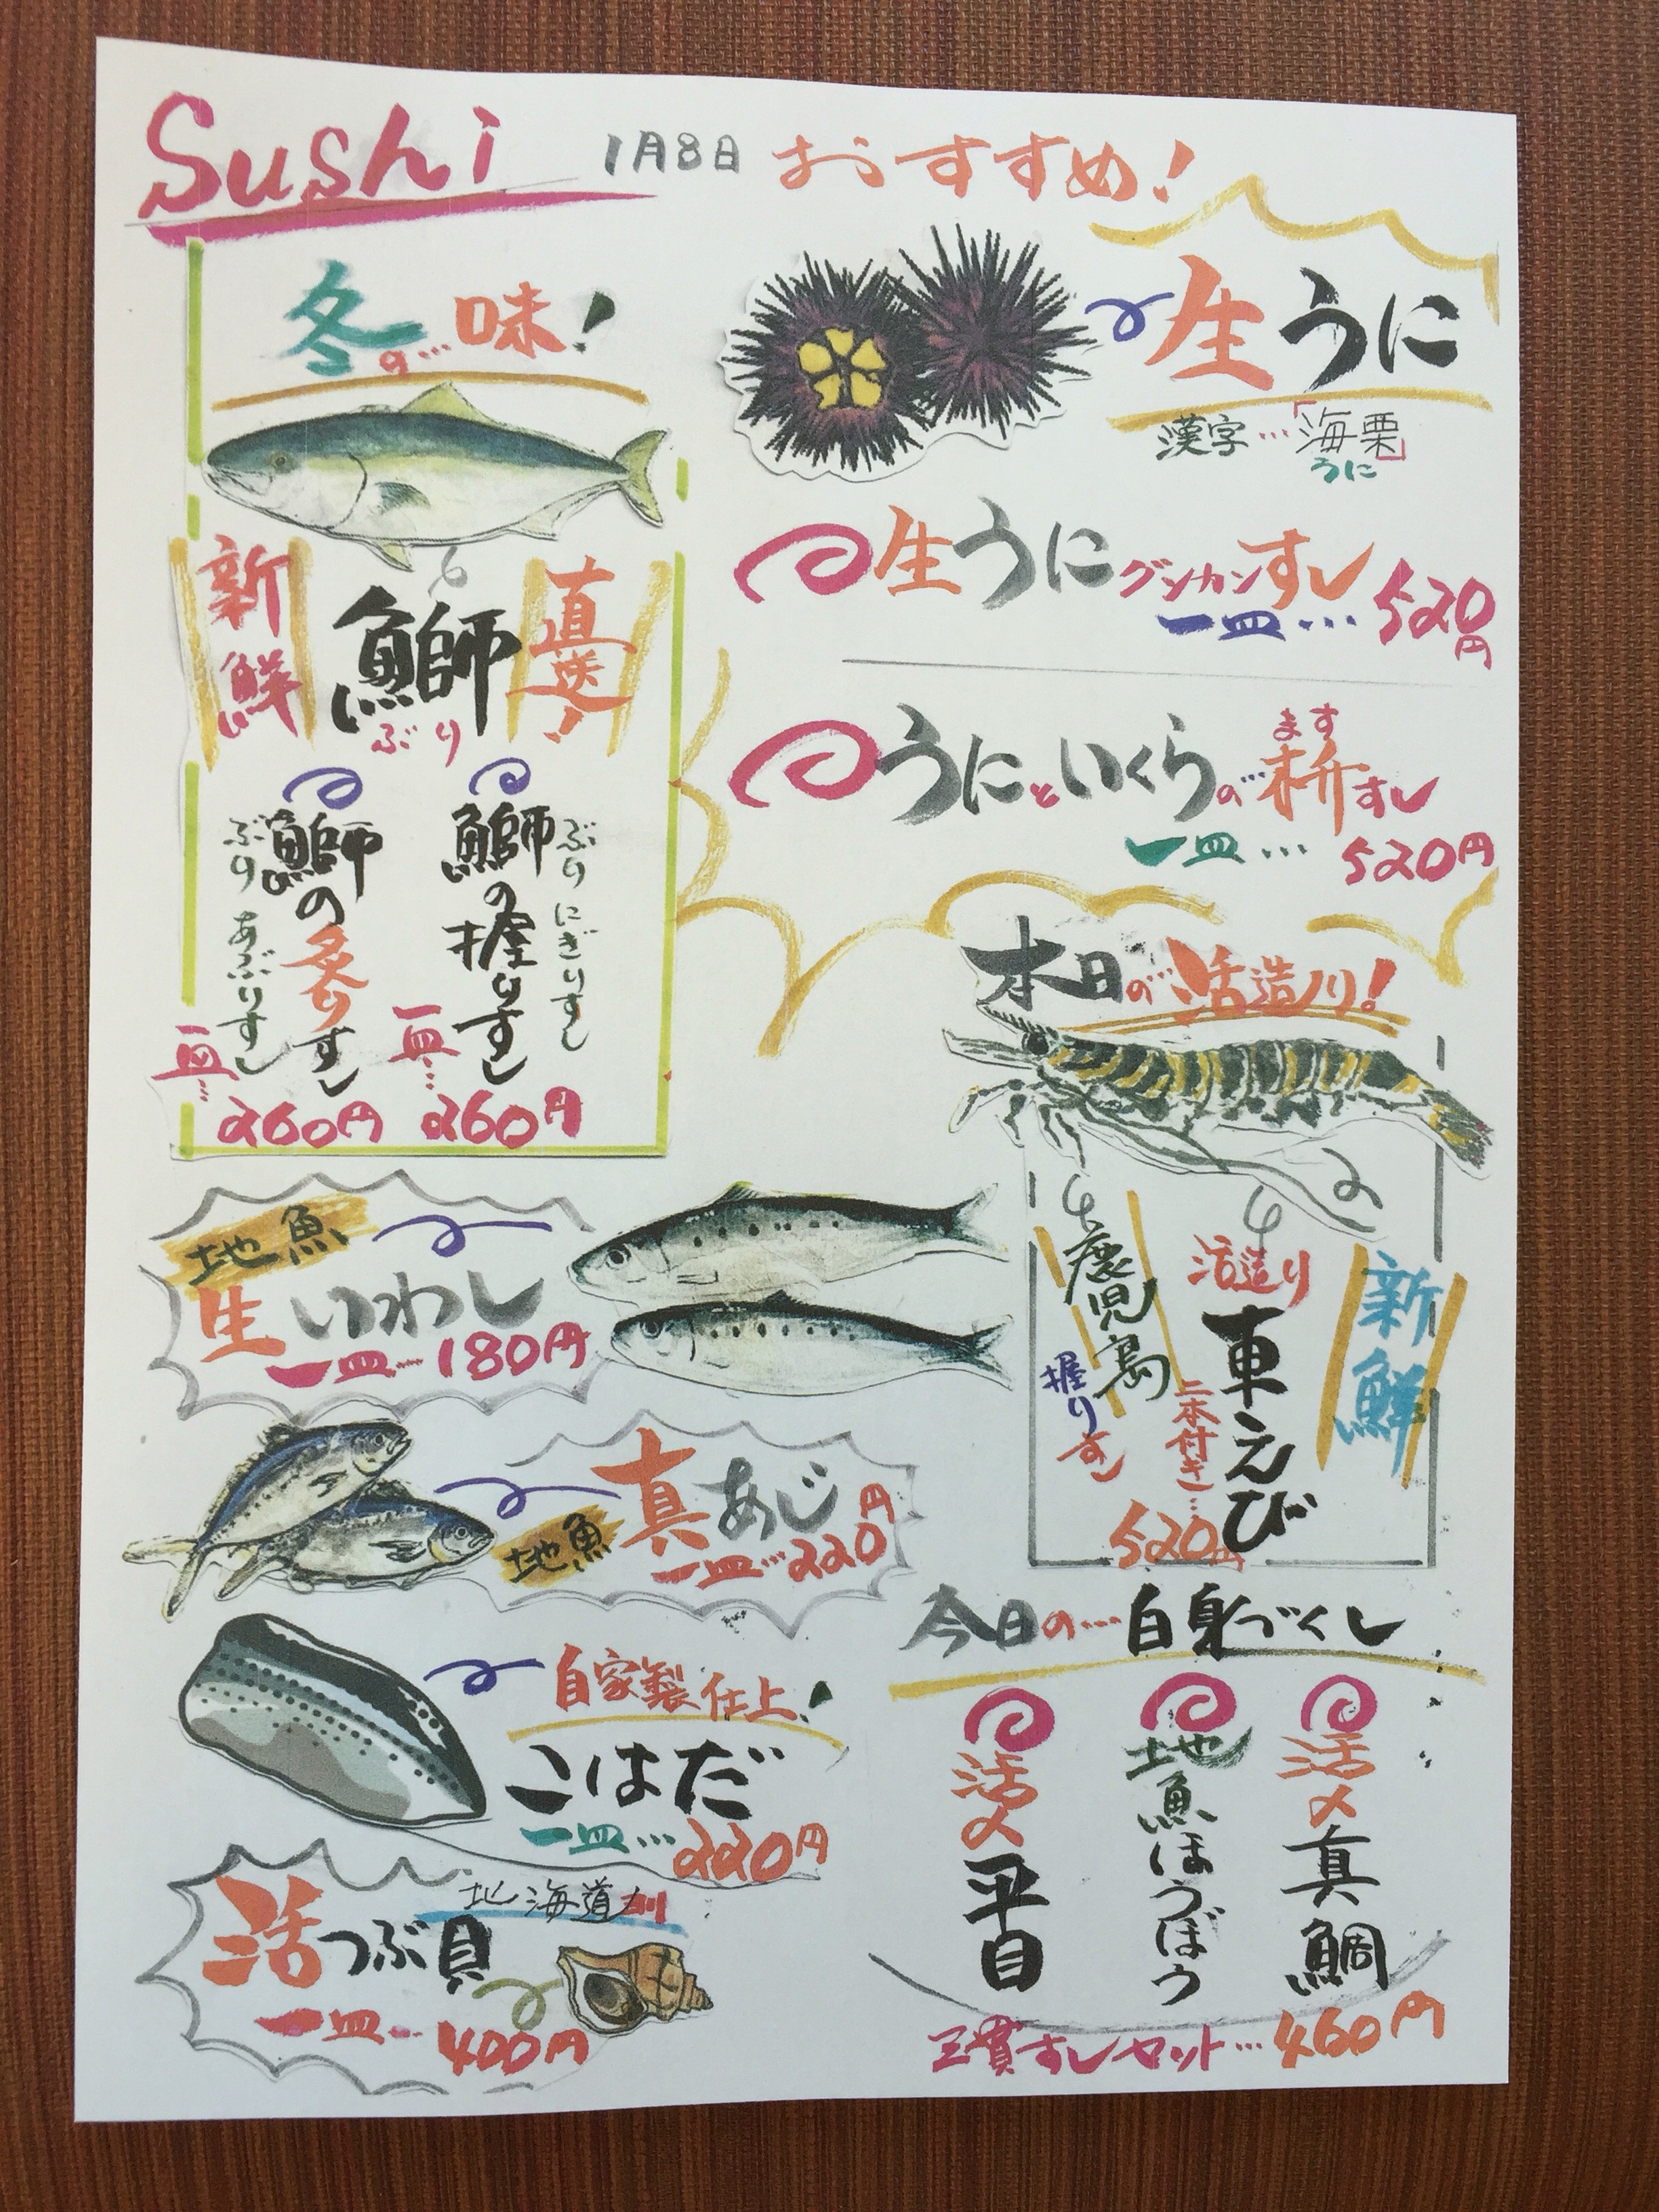 Sushi 1月8日 おすすめ!
冬の…味!
新鮮
直送!
鰤
ぶり
鰤の握りすし
ぶり にぎりすし
一皿…260円
鰤の炙りすし
ぶり あぶりすし
一皿…260円
生うに
漢字…「海栗」
うに
生うにグンカンすし
一皿…520円
うにといくらの…枡すし
ます
一皿…520円
本日の活造り!
新鮮
活造り
車えび
二本付き…
520円
鹿児島
握りすし
地魚
生いわし
一皿…180円
地魚
真あじ
一皿…220円
自家製仕上!
こはだ
一皿…220円
北海道
活つぶ貝
一皿…400円
今日の…白身づくし
活〆真鯛
地魚ほうぼう
活〆平目
三貫すしセット…460円